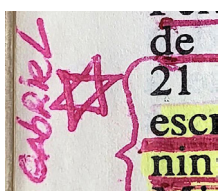 GABRIEL
de
21
escr
nin